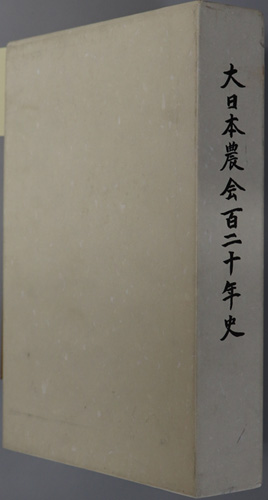 大日本農会百二十年史